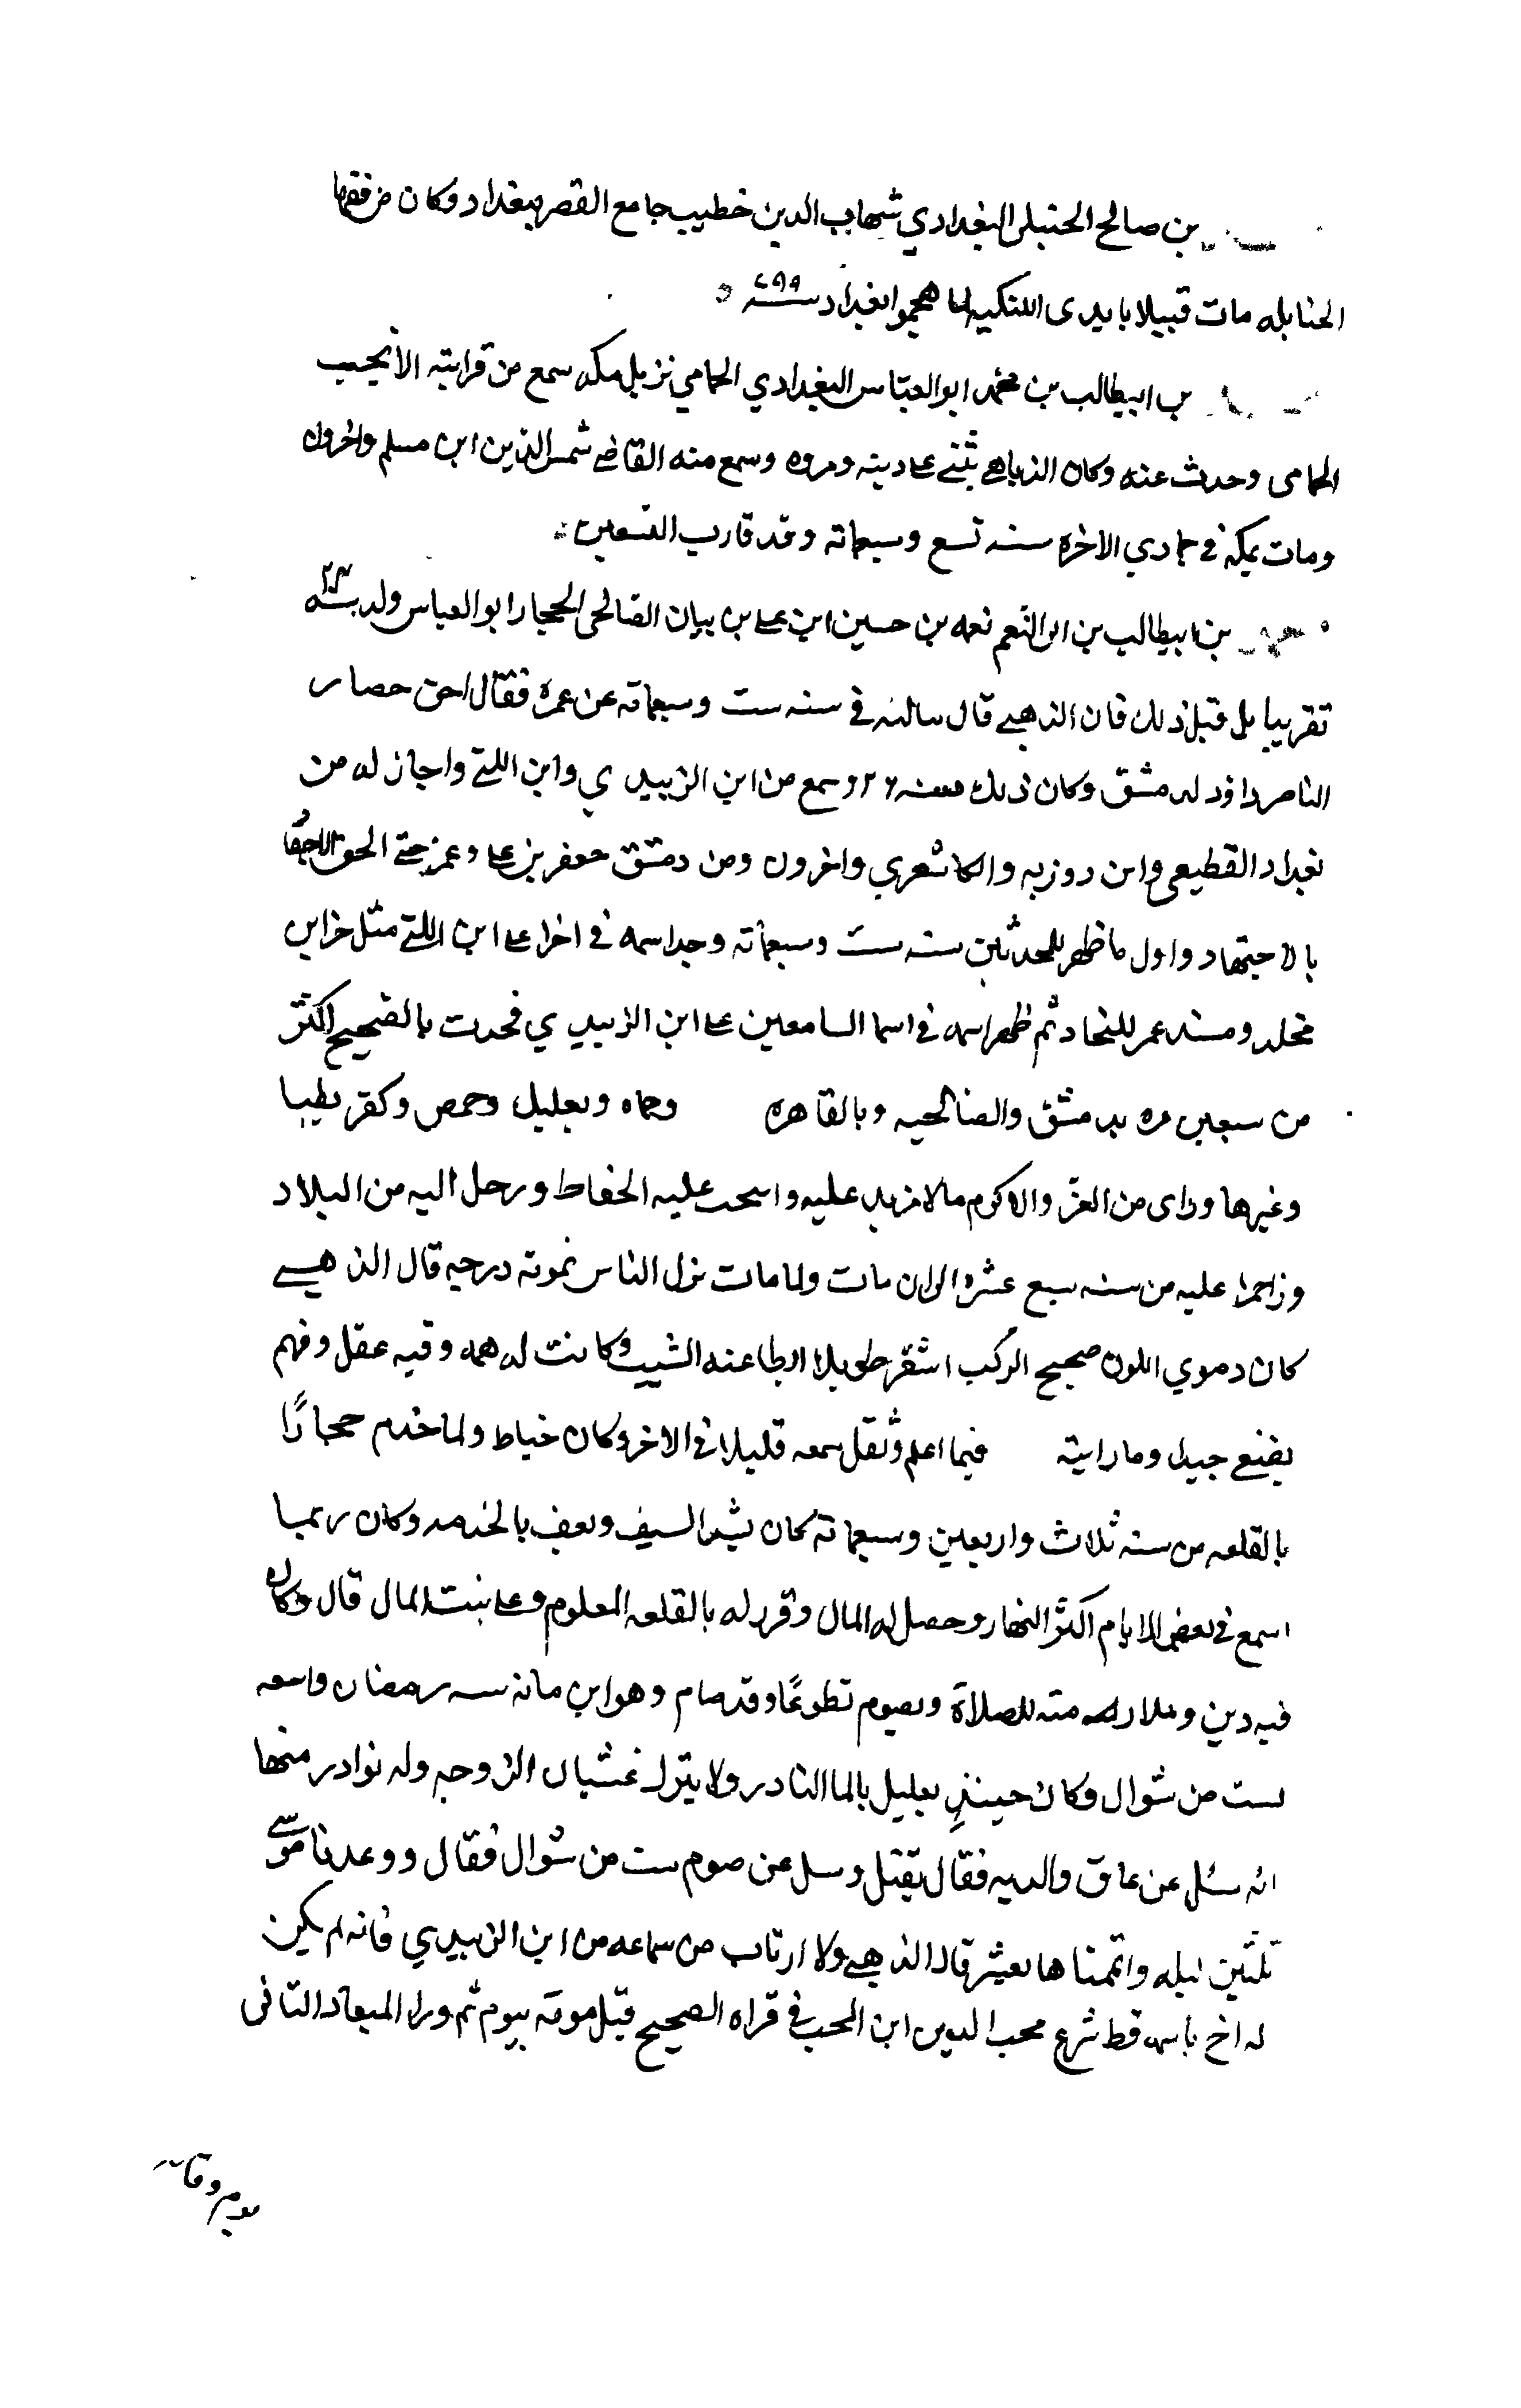 بن صالح الحنبلي البغدادي شهاب الدين خطيب جامع القصر ببغداد وكان من فقها
الحنابله مات قتيلا بايدي اللنكيه لما هجموا بغداد سنة
بن ابيطالب بن محمد ابو العباس البغدادي الحمامي نزيل مكه سمع من قرابته الانجب
الحمامى وحدث عنه وكان الذهبي يثنے على دينه ومروه وسمع منه القاضے شمس الدين ابن مسلم واخرون
ومات بمكه في جمادي الاخره سنه تسع وسبعمائه وقد قارب التسعين
بن ابيطالب بن ابى النعم نعمه بن حسين ابن على بن بيان الصالحى الحجار ابو العباس ولد سنه
تقريبا بل قبل ذلك فان الذهبے قال سالته في سنه ست وسبعمائه عن عمره فقال احق حصار
الناصر داود لدمشق وكان ذلك سنه ٦٢٦ وسمع من ابن الزبيدي وابن اللتے واجاز له من
بغداد القطيعي وابن روزبه والكاشغري واخرون ومن دمشق جعفر بن على وعمر حتے الحق
بالاجتهاد واول ما ظهر للمحدثين سنه ست وسبعمائه وجد اسمه في اجزا على ابن اللتے مثل جز ابن
مخلد ومسند عمر للنجاد ثم ظهر اسمه في اسما السامعين على ابن الزبيدي فحدث بالصحيح اكثر
من سبعين مره بدمشق والصالحيه وبالقاهره وحماه وبعلبك وحمص وكفر بطنا
وغيرها وراى من العز والاكرام مالا مزيد عليه وانتخب عليه الحفاظ ورحل اليه من البلاد
وتزاحموا عليه من سنه سبع عشره الى ان مات ولما مات نزل الناس بموته درجه قال الذهبے
كان دموي اللون صحيح الركب اشقر طويلا ابطا عنه الشيب وكانت له همه وفيه عقل وفهم
يصغے جيدا وما رايته فيما اعلم وثقل سمعه قليلا في الاخر وكان خياط ولما خدم حجارًا
بالقلعه من سنه ثلاث واربعين وسبعمائه كان يشد السيف ويقف بالخدمه وكان ربما
اسمع في بعض الايام اكثر النهار وحصل له المال وقرر له بالقلعه المعلوم وعلى بيت المال قال وكان
فيه دين وملازمه منه للصلاة ويصوم تطوعًا وقد صام وهو ابن مائه سنه رمضان واتبعه
بست من شوال وكان حينئذٍ يغتسل بالما البارد ولا يترك غشيان الزوجه وله نوادر منها
انه سئل عن عاق والديه فقال يقتل وسئل عن صوم ست من شوال فقال وواعدنا موسے
ثلثين ليله واتممناها بعشر قال الذهبے ولا ارتاب من سماعه من ابن الزبيدي فانه لم يكن
له اخ باسمه قط شرع محب الدين ابن المحب في قراه الصحيح قبل موته بيوم ثم قرا الميعاد الثاني
يوم وفاته